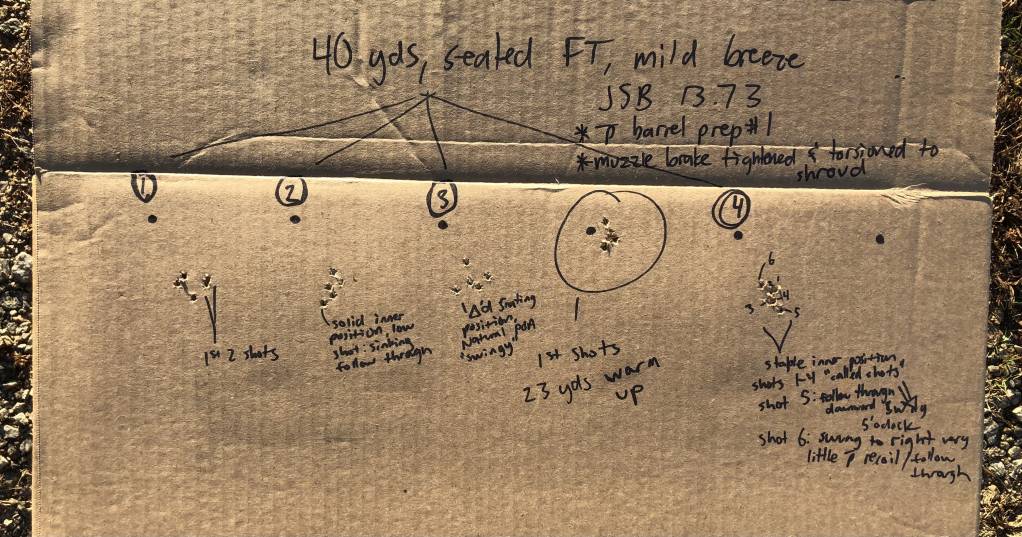 40 yds, seated FT, mild breeze
JSB 13.73
* T barrel prep #1
* muzzle brake tightened & torsioned to
shroud
1
2
3
4
1st 2 shots
solid inner
position, low
shot: sinking
follow through
Δ'd seating
position,
Natural POA
"swingy"
1st shots
23 yds warm
up
6
4
3
5
stable inner position
shots 1-4 "called shots"
shot 5: follow through
downward swing
5'oclock
shot 6: swing to right very
little T recoil/follow
through